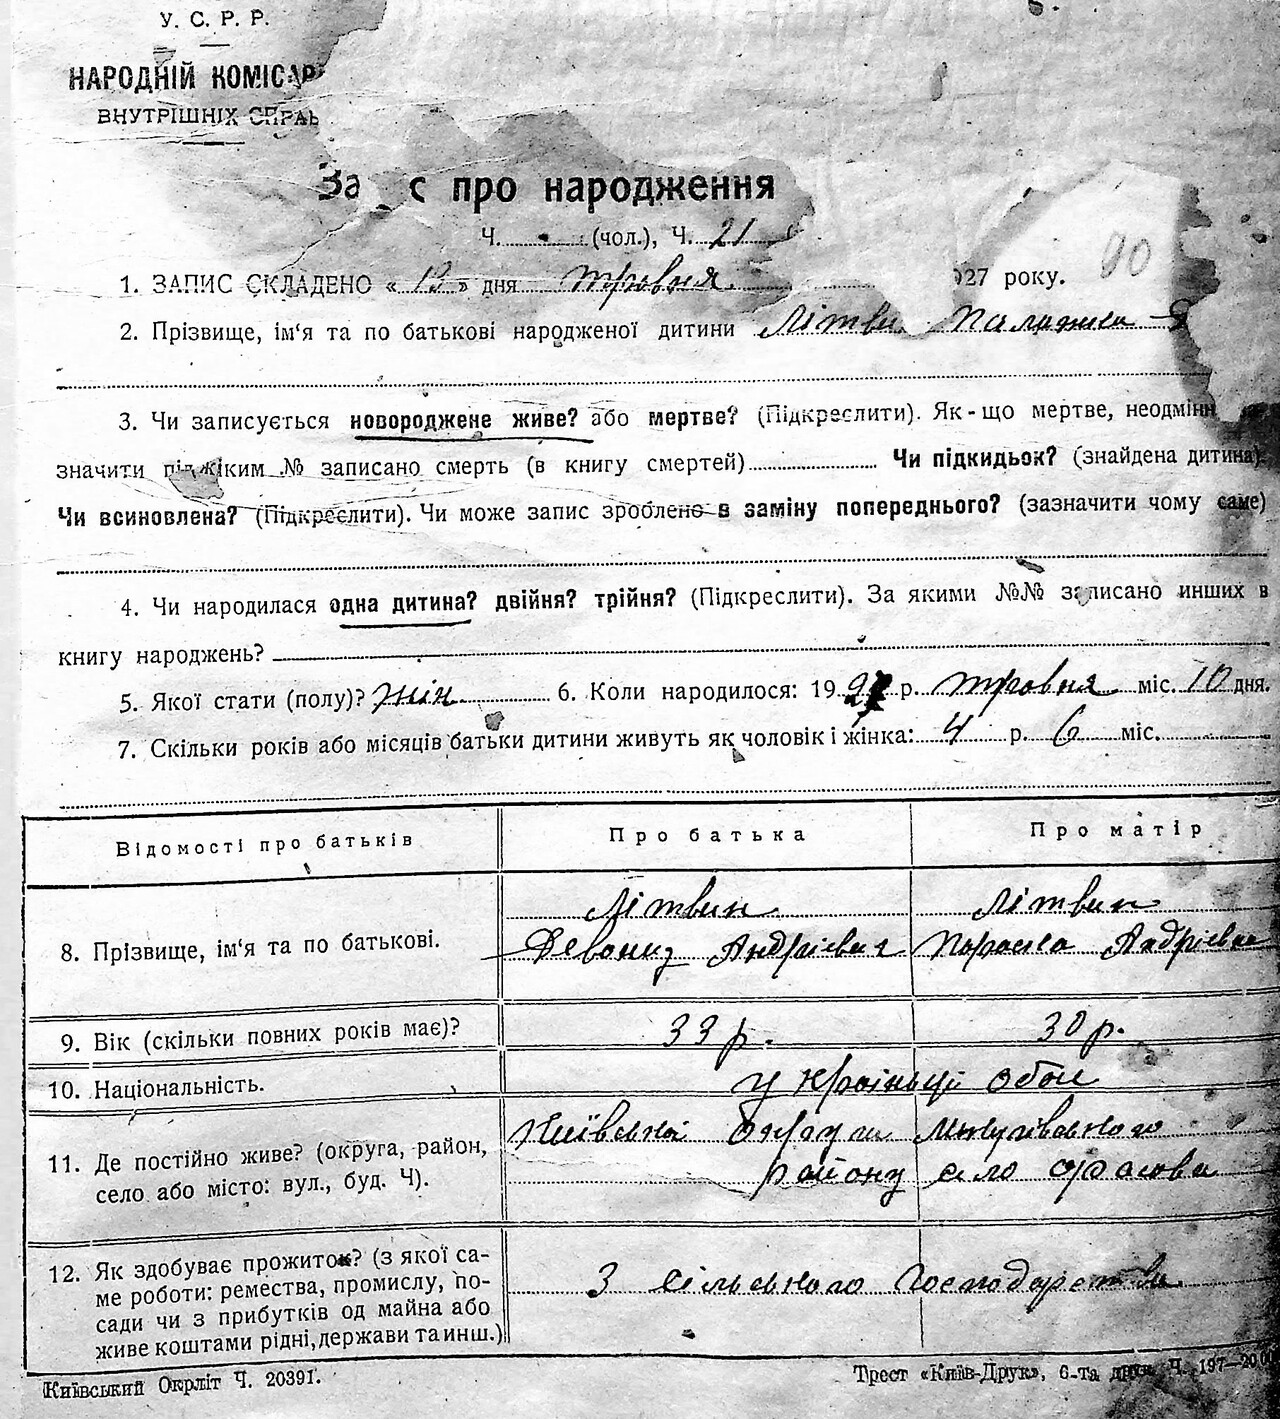 У. С. Р. Р.
НАРОДНІЙ КОМІСАР
ВНУТРІШНІХ СПРАВ
За с про народження
Ч. (чол.), Ч. 21
1. ЗАПИС СКЛАДЕНО « 13 » дня травня 927 року.
90
2. Прізвище, ім'я та по батькові народженої дитини Літви
3. Чи записується новороджене живе? або мертве? (Підкреслити). Як-що мертве, неодмінн
значити під яким № записано смерть (в книгу смертей) Чи підкидьок? (знайдена дитина)
Чи всиновлена? (Підкреслити). Чи може запис зроблено в заміну попереднього? (зазначити чому саме)
4. Чи народилася одна дитина? двійня? трійня? (Підкреслити). За якими №№ записано инших в
книгу народжень?
5. Якої стати (полу)? жін 6. Коли народилося: 1927 р. травня міс. 10 дня.
7. Скільки років або місяців батьки дитини живуть як чоловік і жінка: 4 р. 6 міс.
Відомості про батьків Про батька Про матір
8. Прізвище, ім'я та по батькові. Літвин Літвин
Андрієвич Параска Андрієвна
9. Вік (скільки повних років має)? 33 р. 30 р.
10. Національність. українці обоє
11. Де постійно живе? (округа, район, Київської округи
село або місто: вул., буд. Ч). району село Фасова
12. Як здобуває прожиток? (з якої са-
ме роботи: ремества, промислу, по- З сільського господарства
сади чи з прибутків од майна або
живе коштами рідні, держави та инш.)
Київський Окрліт Ч. 20391. Трест «Київ-Друк», 6-та друк. Ч. 197—20.00